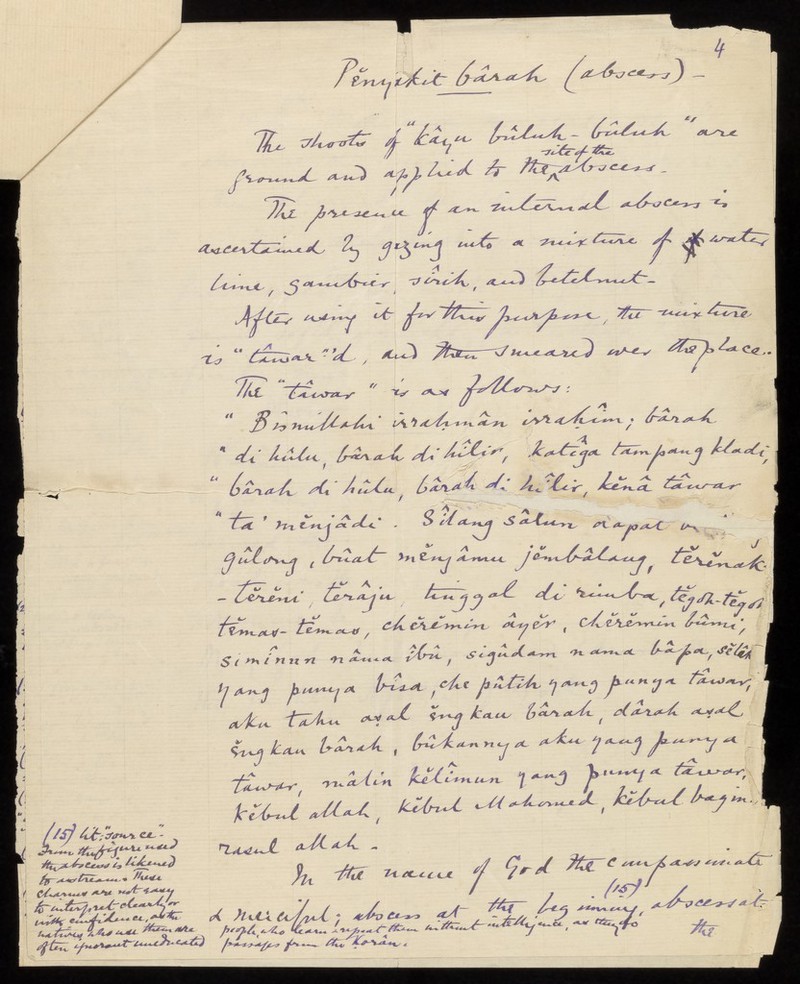 4
Pĕnyakit bârah (abscess) -
The shoots of "Kâyu bûluh-bûluh" are
site of the
ground and applied to the abscess.
The presence of an internal abscess is
ascertained by gazing into a mixture of water
lime, gambier, sîrih, and betelnut -
After using it for this purpose, the mixture
is "tâwar"'d, and then smeared over the place.
The "tâwar" is as follows:
" Bismillahi irrahmân irrahîm; bârah
" di hûlu, bârah di hîlir, katîga tampang kladi,
" bârah di hûlu, bârah di hîlir, kĕnâ tâwar
" ta' mĕnjâdi. Sîlang sâlun dapat
gûlong, bûat mĕnjâmu jĕmbâlang, tĕrĕnak
- tĕrĕni, tĕrâju, tinggal di rimba, tĕgoh-tĕgoh
tĕmas-tĕmas, chĕrĕmin âyĕr, chĕrĕmin bûmi,
simînun nâma îbû, sigûdam nama bâpa,
yang punya bîsa, che pûtih yang punya tâwar,
aku tahu aṣal ĕngkau bârah, dârah aṣal
ĕngkau bârah, bûkannya aku yang punya
tâwar, mâlin kĕlîmun yang punya tâwar,
kĕbul allah, kĕbul Mahomed, kĕbul bagin-
rasul allah -
In the name of God the compassionate
(15)
& merciful; abscess at the beginning, abscess at
the
(15) lit: "source".
From the figure used
the abscess is likened
to a stream. These
charms are not easy
to interpret clearly or
with confidence, as the
natives who use them are
often ignorant uneducated
people, who learn & repeat them without intelligence, as they do
passages from the Korân.